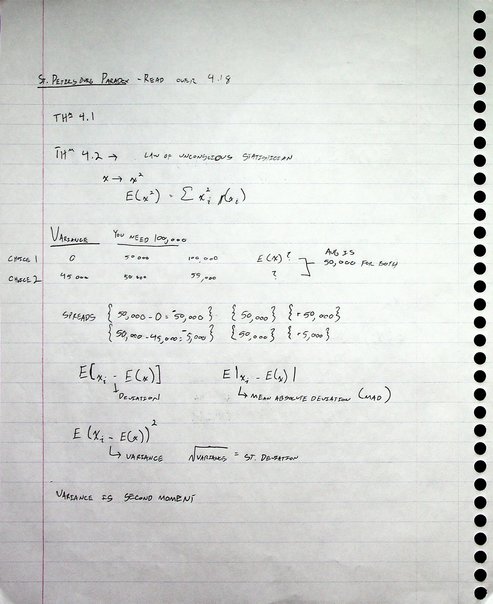 ST. PETERSBURG PARADOX - READ OVER 4.18
THM 4.1
THM 4.2 → LAW OF UNCONSCIOUS STATISTICIAN
x → x²
E(x²) = Σ x_i² p(x_i)
VARIANCE YOU NEED 100,000
CHOICE 1 0 50 000 100,000 E(x)? AVG IS
CHOICE 2 45 000 50 000 55,000 ? 50,000 FOR BOTH
SPREADS {50,000 - 0 = 50,000} {50,000} {+50,000}
{50,000 - 45,000 = 5,000} {50,000} {+5,000}
E[x_i - E(x)] E|x_i - E(x)|
↳ DEVIATION ↳ MEAN ABSOLUTE DEVIATION (MAD)
E(x_i - E(x))²
↳ VARIANCE √VARIANCE = ST. DEVIATION
VARIANCE IS SECOND MOMENT